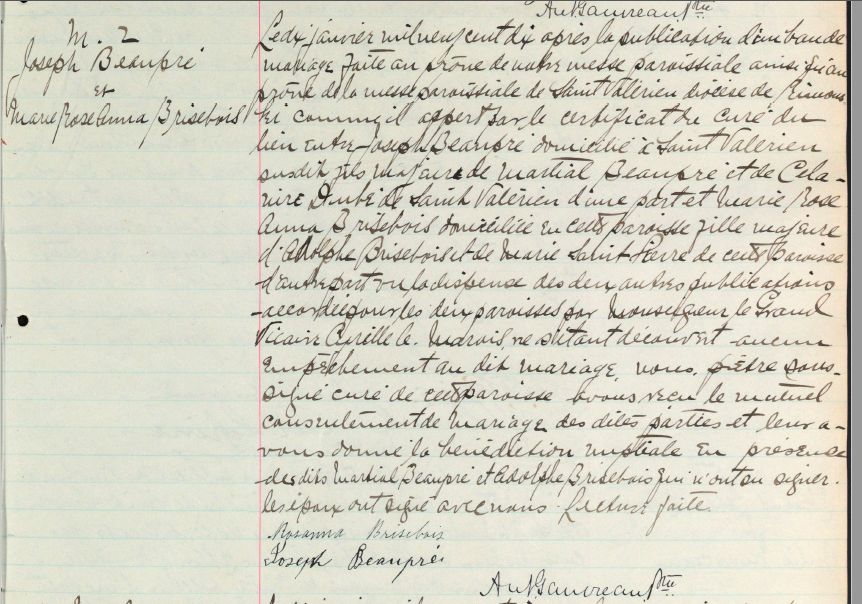 Ant Gauvreau Ptre
M. 2
Joseph Beaupré
et
Marie Rose Anna Brisebois
Le dix janvier mil neuf cent dix après la publication d'un ban de
mariage faite au prône de notre messe paroissiale ainsi qu'au
prône de la messe paroissiale de Saint Valérien diocese de Rimous-
ki comme il appert par le certificat du curé du
lieu entre Joseph Beaupré domicilié à Saint Valérien
susdit fils majeur de Martial Beaupré et de Céla-
nire Dubé de Saint Valérien d'une part et Marie Rose
Anna Brisebois domiciliée en cette paroisse fille majeure
d'Adolphe Brisebois et de Marie Saint Pierre de cette paroisse
d'autre part vu la dispense des deux autres publications
accordée pour les deux paroisses par Monseigneur le Grand
Vicaire Cyrille E. Marois, ne s'étant découvert aucun
empêchement au dit mariage, nous, prêtre sous-
signé curé de cette paroisse avons reçu le mutuel
consentement de mariage des dites parties et leur a-
vons donné la bénédiction nuptiale en présence
des dits Martial Beaupré et Adolphe Brisebois qui n'ont su signer.
les époux ont signé avec nous. Lecture faite.
Rosanna Brisebois
Joseph Beaupré
Ant Gauvreau Ptre